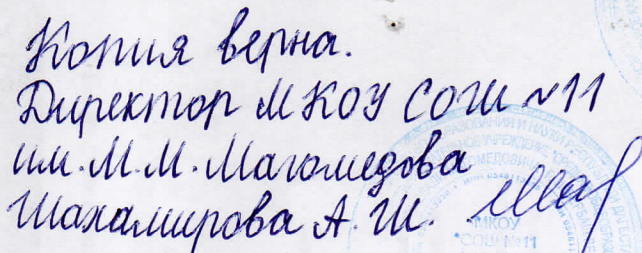 Копия верна.
Директор МКОУ СОШ №11
им. М.М. Магомедова
Шахамирова А.Ш.
МКОУ
СОШ №11